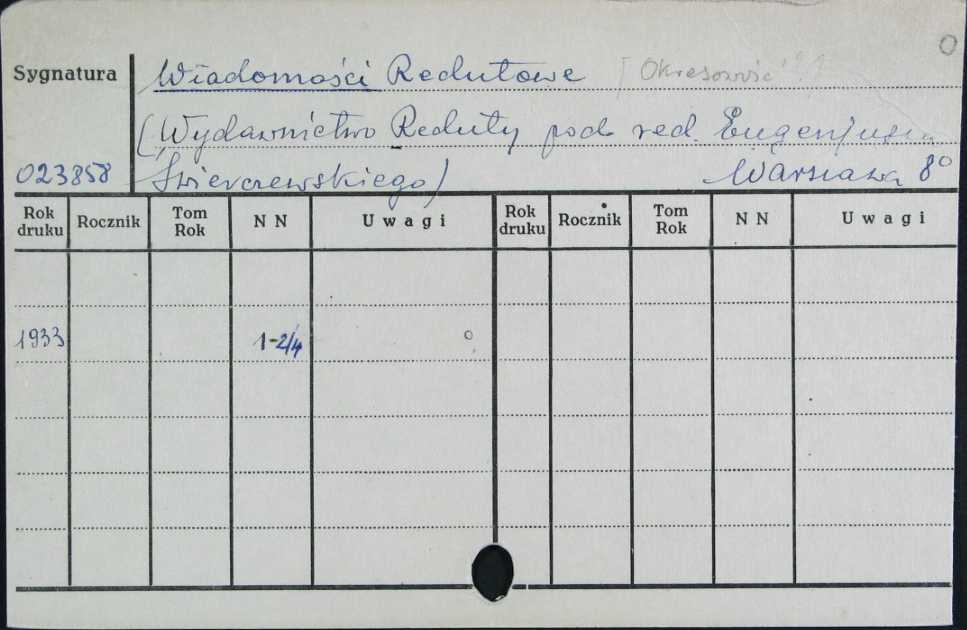 O
Sygnatura
Wiadomości Redutowe [Okresowość?]
(Wydawnictwo Reduty pod red. Eugenjusza
023858 Świerczewskiego) Warszawa 8°
Rok druku Rocznik Tom Rok N N Uwagi Rok druku Rocznik Tom Rok N N Uwagi
1933 1-2/4 o